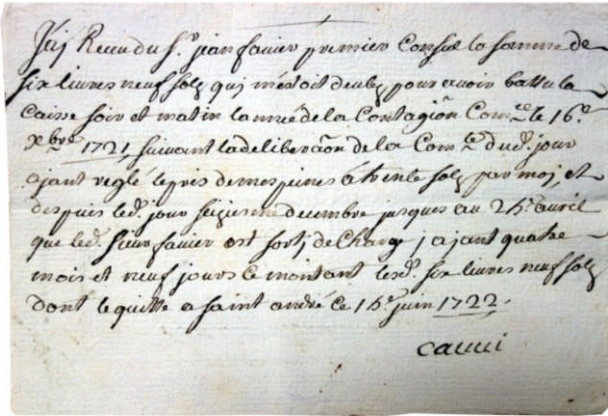 J'ay Receu du S.r jean favier premier Consul la somme de
six livres neuf solz qui m'estoit deube pour avoir battu la
caisse soir et matin la de la Contagion Com.cée le 16.e
xbre 1721 suivant la deliberãon de la Com.té dud. jour
ajant reglé le pris de mes peines à trente solz par moj, et
despuis led. jour seiziesme decembre jusques au 24.e avril
que led. sieur favier est sortj de Charge j ajant quatre
mois et neuf jours ce montant lesd. six livres neuf solz
dont le quitte a saint andré ce 14.e juin 1722.